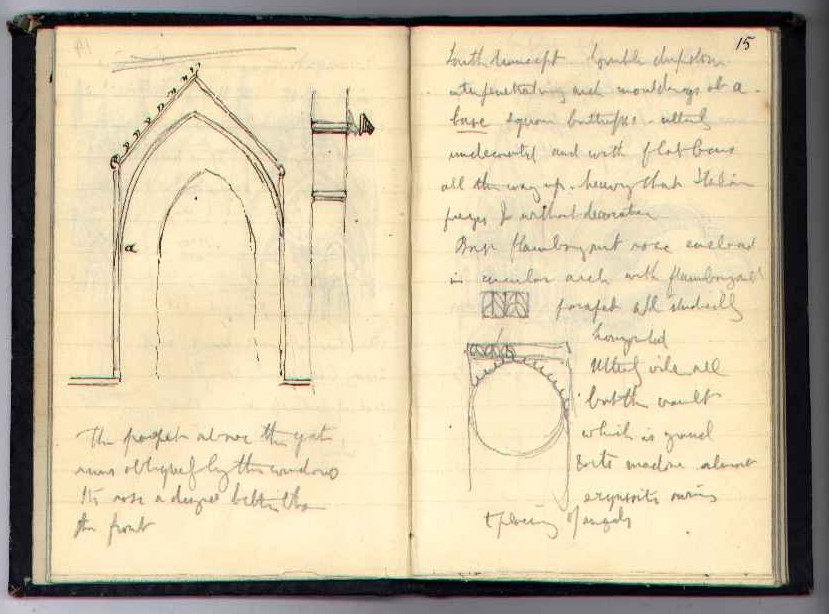 a
The parapet above the gate
runs obliquely by the windows
Its rose a degree better than
the front
15
South transept. Horrible
interpenetrating arch mouldings at a.
base square buttress - utterly
undecorated and with flat bars
all the way up. heavy that Italian
without decoration
flamboyant rose enclosed
in circular arch with flamboyant
parapet all studiedly
Utterly vile all
but the vault
which is grand
almost
exquisite
& placing of angels